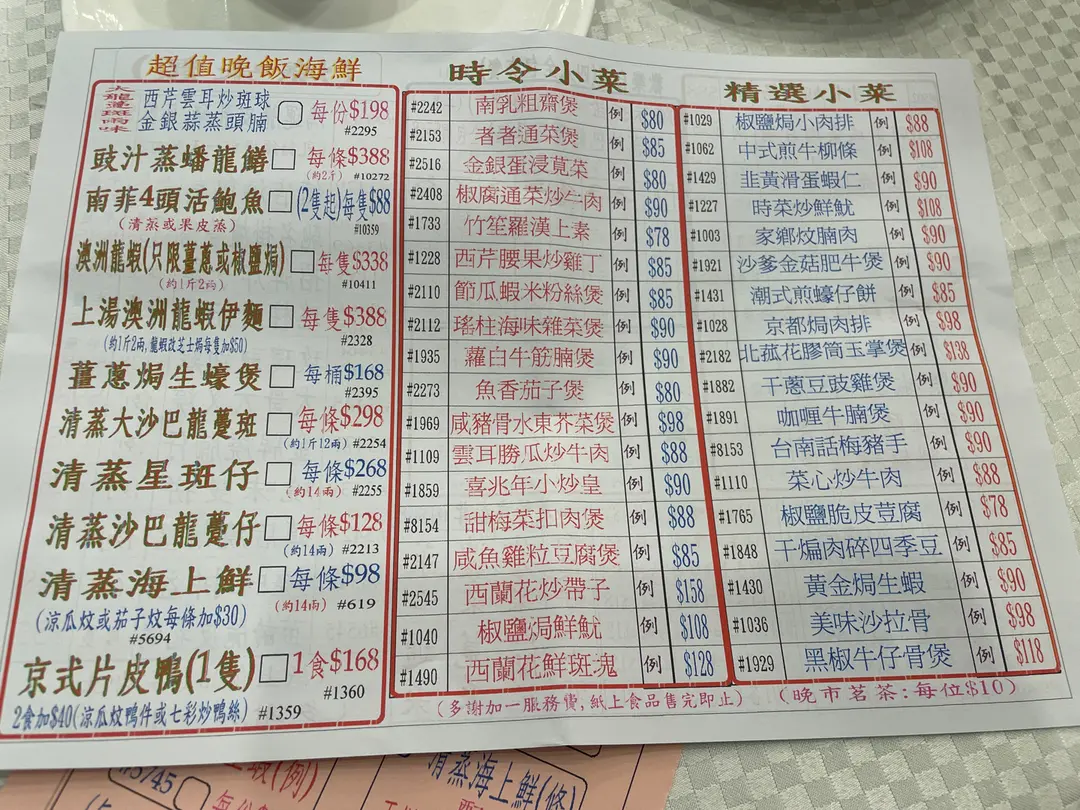 超值晚飯海鮮
大龍躉斑兩味
西芹雲耳炒斑球
金銀蒜蒸頭腩
每份$198
#2295
豉汁蒸蟠龍鱔 每條$388
(約2斤) #10272
南菲4頭活鮑魚 (2隻起)每隻$88
(清蒸或果皮蒸) #10359
澳洲龍蝦(只限薑蔥或椒鹽焗) 每隻$338
(約1斤2兩) #10411
上湯澳洲龍蝦伊麵 每隻$388
(約1斤2兩,龍蝦改芝士焗每隻加$50) #2328
薑蔥焗生蠔煲 每桶$168
#2395
清蒸大沙巴龍躉斑 每條$298
(約1斤12兩) #2254
清蒸星斑仔 每條$268
(約14兩) #2255
清蒸沙巴龍躉仔 每條$128
(約14兩) #2213
清蒸海上鮮 每條$98
(涼瓜炆或茄子炆每條加$30) (約14兩) #619
#5694
京式片皮鴨(1隻) 1食$168
#1360
2食加$40(涼瓜炆鴨件或七彩炒鴨絲) #1359
時令小菜
#2242 南乳粗齋煲 例 $80
#2153 者者通菜煲 例 $85
#2516 金銀蛋浸莧菜 例 $80
#2408 椒腐通菜炒牛肉 例 $90
#1733 竹笙羅漢上素 例 $78
#1228 西芹腰果炒雞丁 例 $85
#2110 節瓜蝦米粉絲煲 例 $85
#2112 瑤柱海味雜菜煲 例 $90
#1935 蘿白牛筋腩煲 例 $90
#2273 魚香茄子煲 例 $80
#1969 咸豬骨水東芥菜煲 例 $98
#1109 雲耳勝瓜炒牛肉 例 $88
#1859 喜兆年小炒皇 例 $90
#8154 甜梅菜扣肉煲 例 $88
#2147 咸魚雞粒豆腐煲 例 $85
#2545 西蘭花炒帶子 例 $158
#1040 椒鹽焗鮮魷 例 $108
#1490 西蘭花鮮斑塊 例 $128
精選小菜
#1029 椒鹽焗小肉排 例 $88
#1062 中式煎牛柳條 例 $108
#1429 韭黃滑蛋蝦仁 例 $90
#1227 時菜炒鮮魷 例 $108
#1003 家鄉炆腩肉 例 $90
#1921 沙爹金菇肥牛煲 例 $90
#1431 潮式煎蠔仔餅 例 $85
#1028 京都焗肉排 例 $98
#2182 北菰花膠筒玉掌煲 例 $138
#1882 干蔥豆豉雞煲 例 $90
#1891 咖喱牛腩煲 例 $90
#8153 台南話梅豬手 例 $90
#1110 菜心炒牛肉 例 $88
#1765 椒鹽脆皮荳腐 例 $78
#1848 干煸肉碎四季豆 例 $85
#1430 黃金焗生蝦 例 $90
#1036 美味沙拉骨 例 $98
#1929 黑椒牛仔骨煲 例 $118
(多謝加一服務費,紙上食品售完即止) (晚市茗茶:每位$10)
清蒸海上鮮(條)